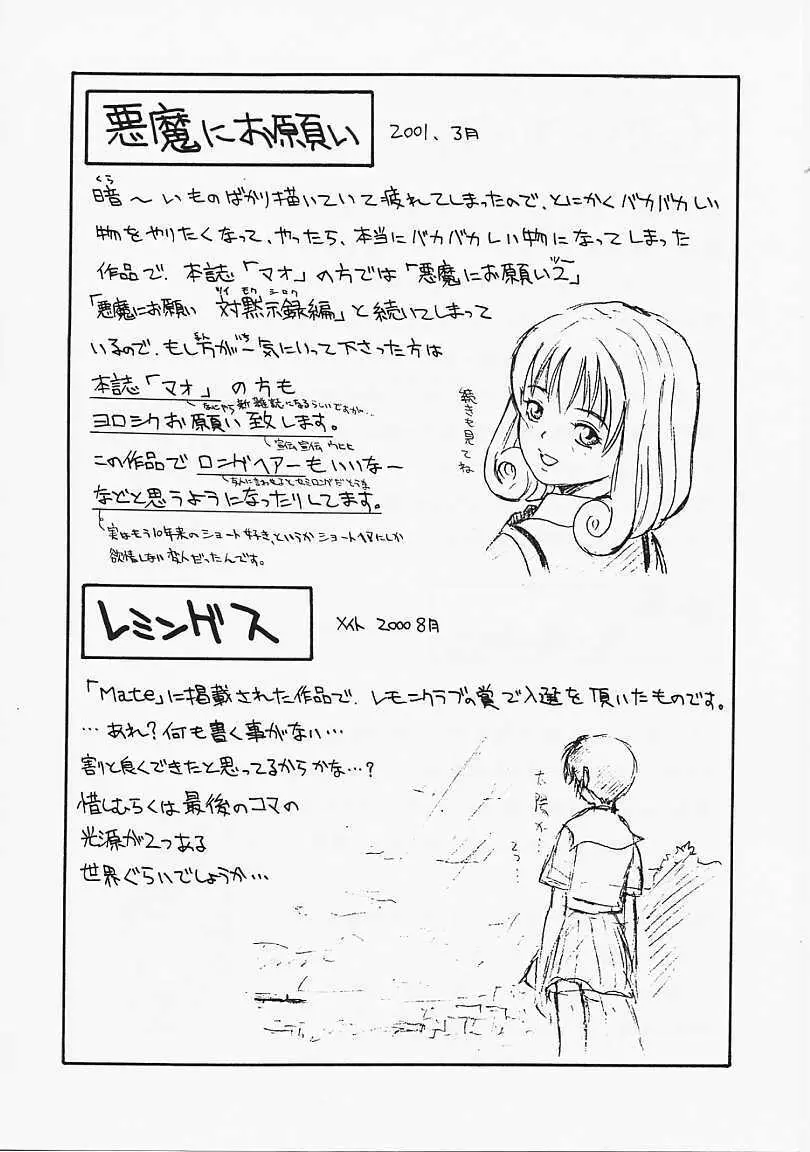 悪魔にお願い
2001、3月
くら
暗～いものばかり描いていて疲れてしまったので、とにかくバカバカしい
物をやりたくなって、やったら、本当にバカバカしい物になってしまった
作品で、本誌「マオ」の方では「悪魔にお願い2」
ツー
「悪魔にお願い 対黙示録編」と続いてしまって
ツイ モク シロク
いるので、もし万が一気にいって下さった方は
まん いち
本誌「マオ」の方も
なにやら新雑誌になるらしいですが…
ヨロシクお願い致します。
宣伝宣伝 ウヒヒ
この作品でロングヘアーもいいなー
などと思うようになったりしてます。
実はもう10年来のショート好き、というかショートヘアにしか
欲情しない変人だったんです。
続きも見てね
レミングス
メイト 2000 8月
「Mate」に掲載された作品で、レモンクラブの賞で入選を頂いたものです。
…あれ?何も書く事がない…
割と良くできたと思ってるからかな…?
惜しむらくは最後のコマの
光源が2つある
世界ぐらいでしょうか…
太陽が…
2つ…